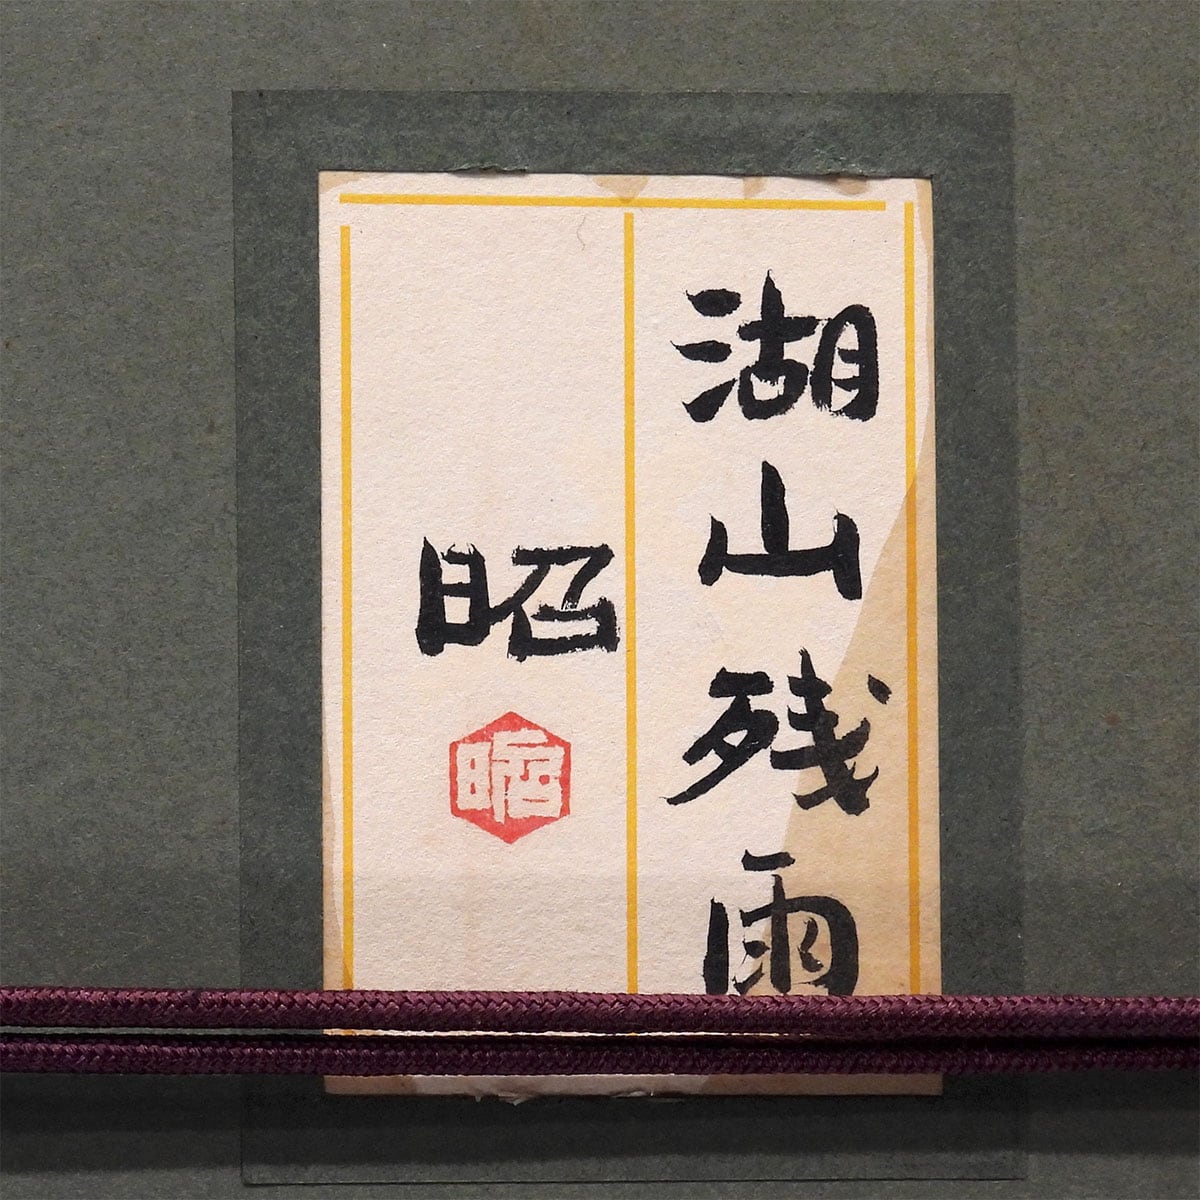 湖山残雨
昭
昭